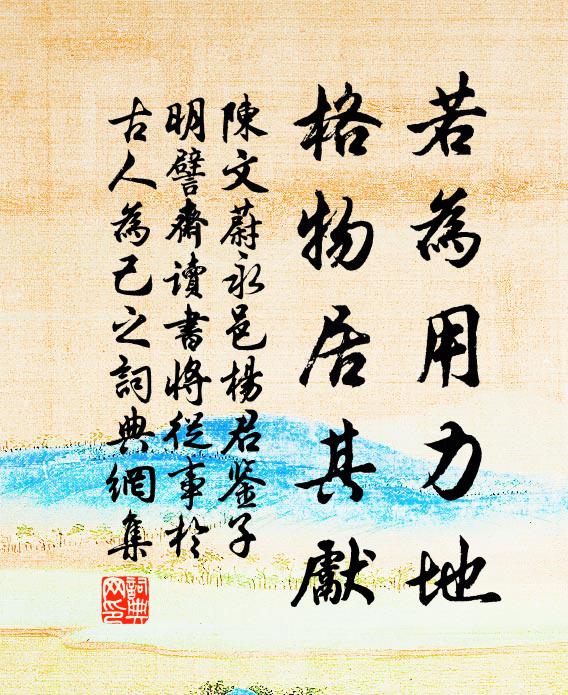 若為用力地
格物居其獻
陳文蔚永邑楊君鉴子
明譬齋讀書將從事於
古人為己之詞典網集
詞典
网印